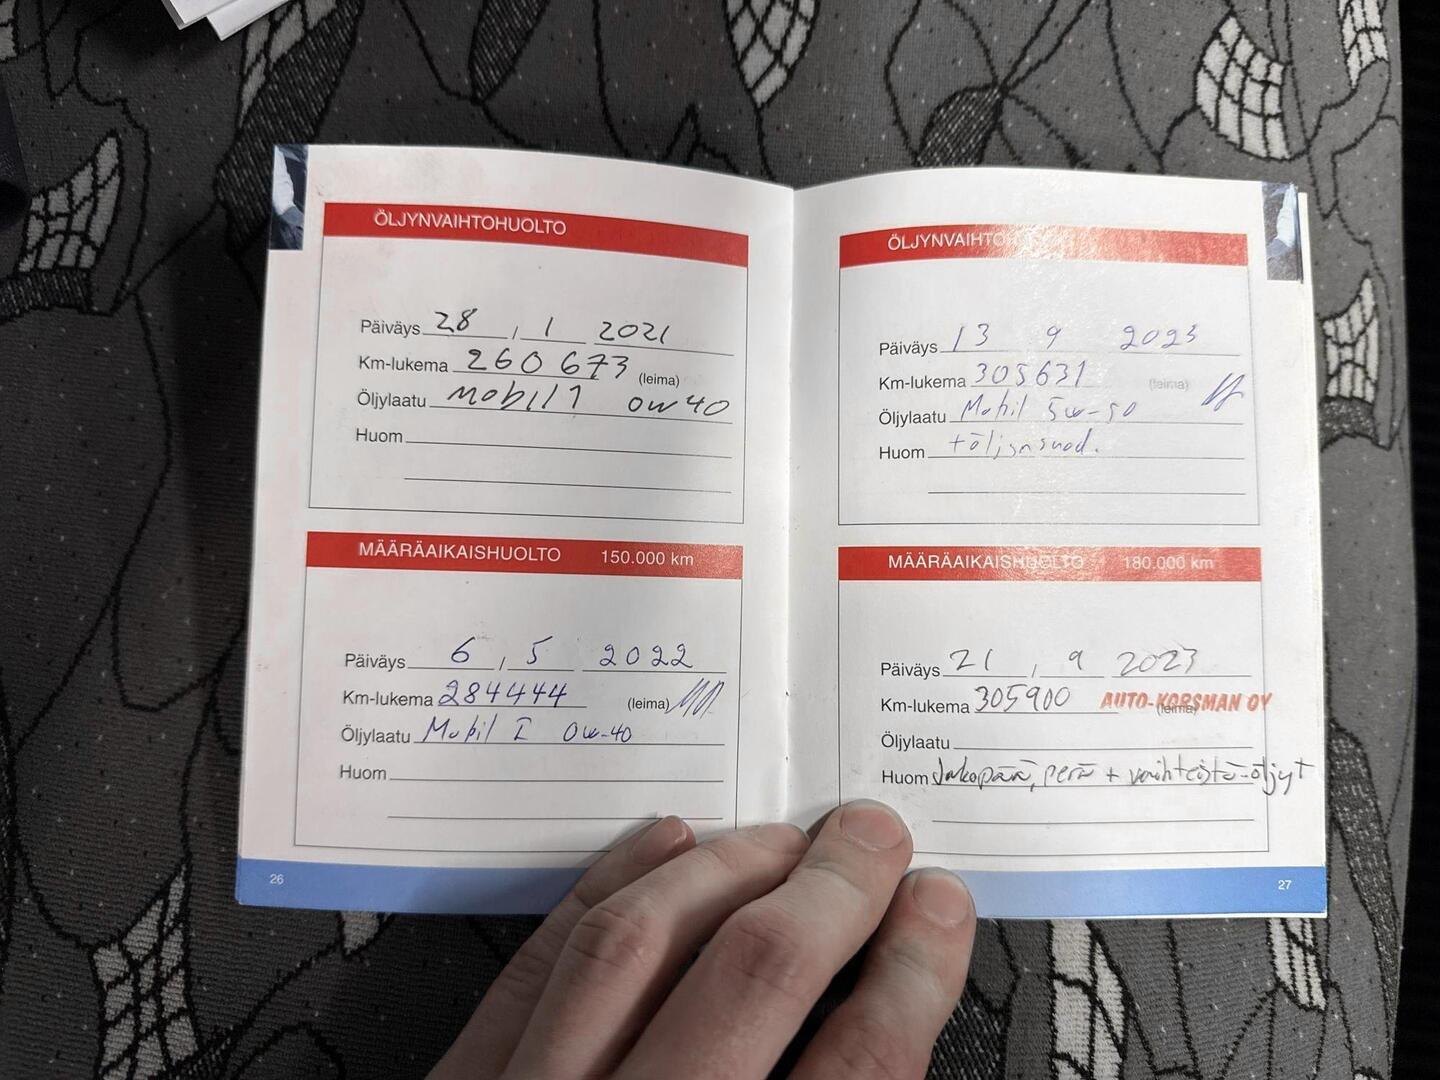 ÖLJYNVAIHTOHUOLTO
Päiväys 28 , 1 2021
Km-lukema 260 673 (leima)
Öljylaatu mobil 1 0w40
Huom
MÄÄRÄAIKAISHUOLTO 150.000 km
Päiväys 6 , 5 2022
Km-lukema 284444 (leima)
Öljylaatu Mobil 1 0w-40
Huom
26
ÖLJYNVAIHTOHUOLTO
Päiväys 13 9 2023
Km-lukema 305631 (leima)
Öljylaatu Mobil 5w-50
Huom +öljynsuod.
MÄÄRÄAIKAISHUOLTO 180.000 km
Päiväys 21 , 9 2023
Km-lukema 305900 AUTO-KORSMAN OY (leima)
Öljylaatu
Huom Jakopää, perä + vaihteisto-öljyt
27